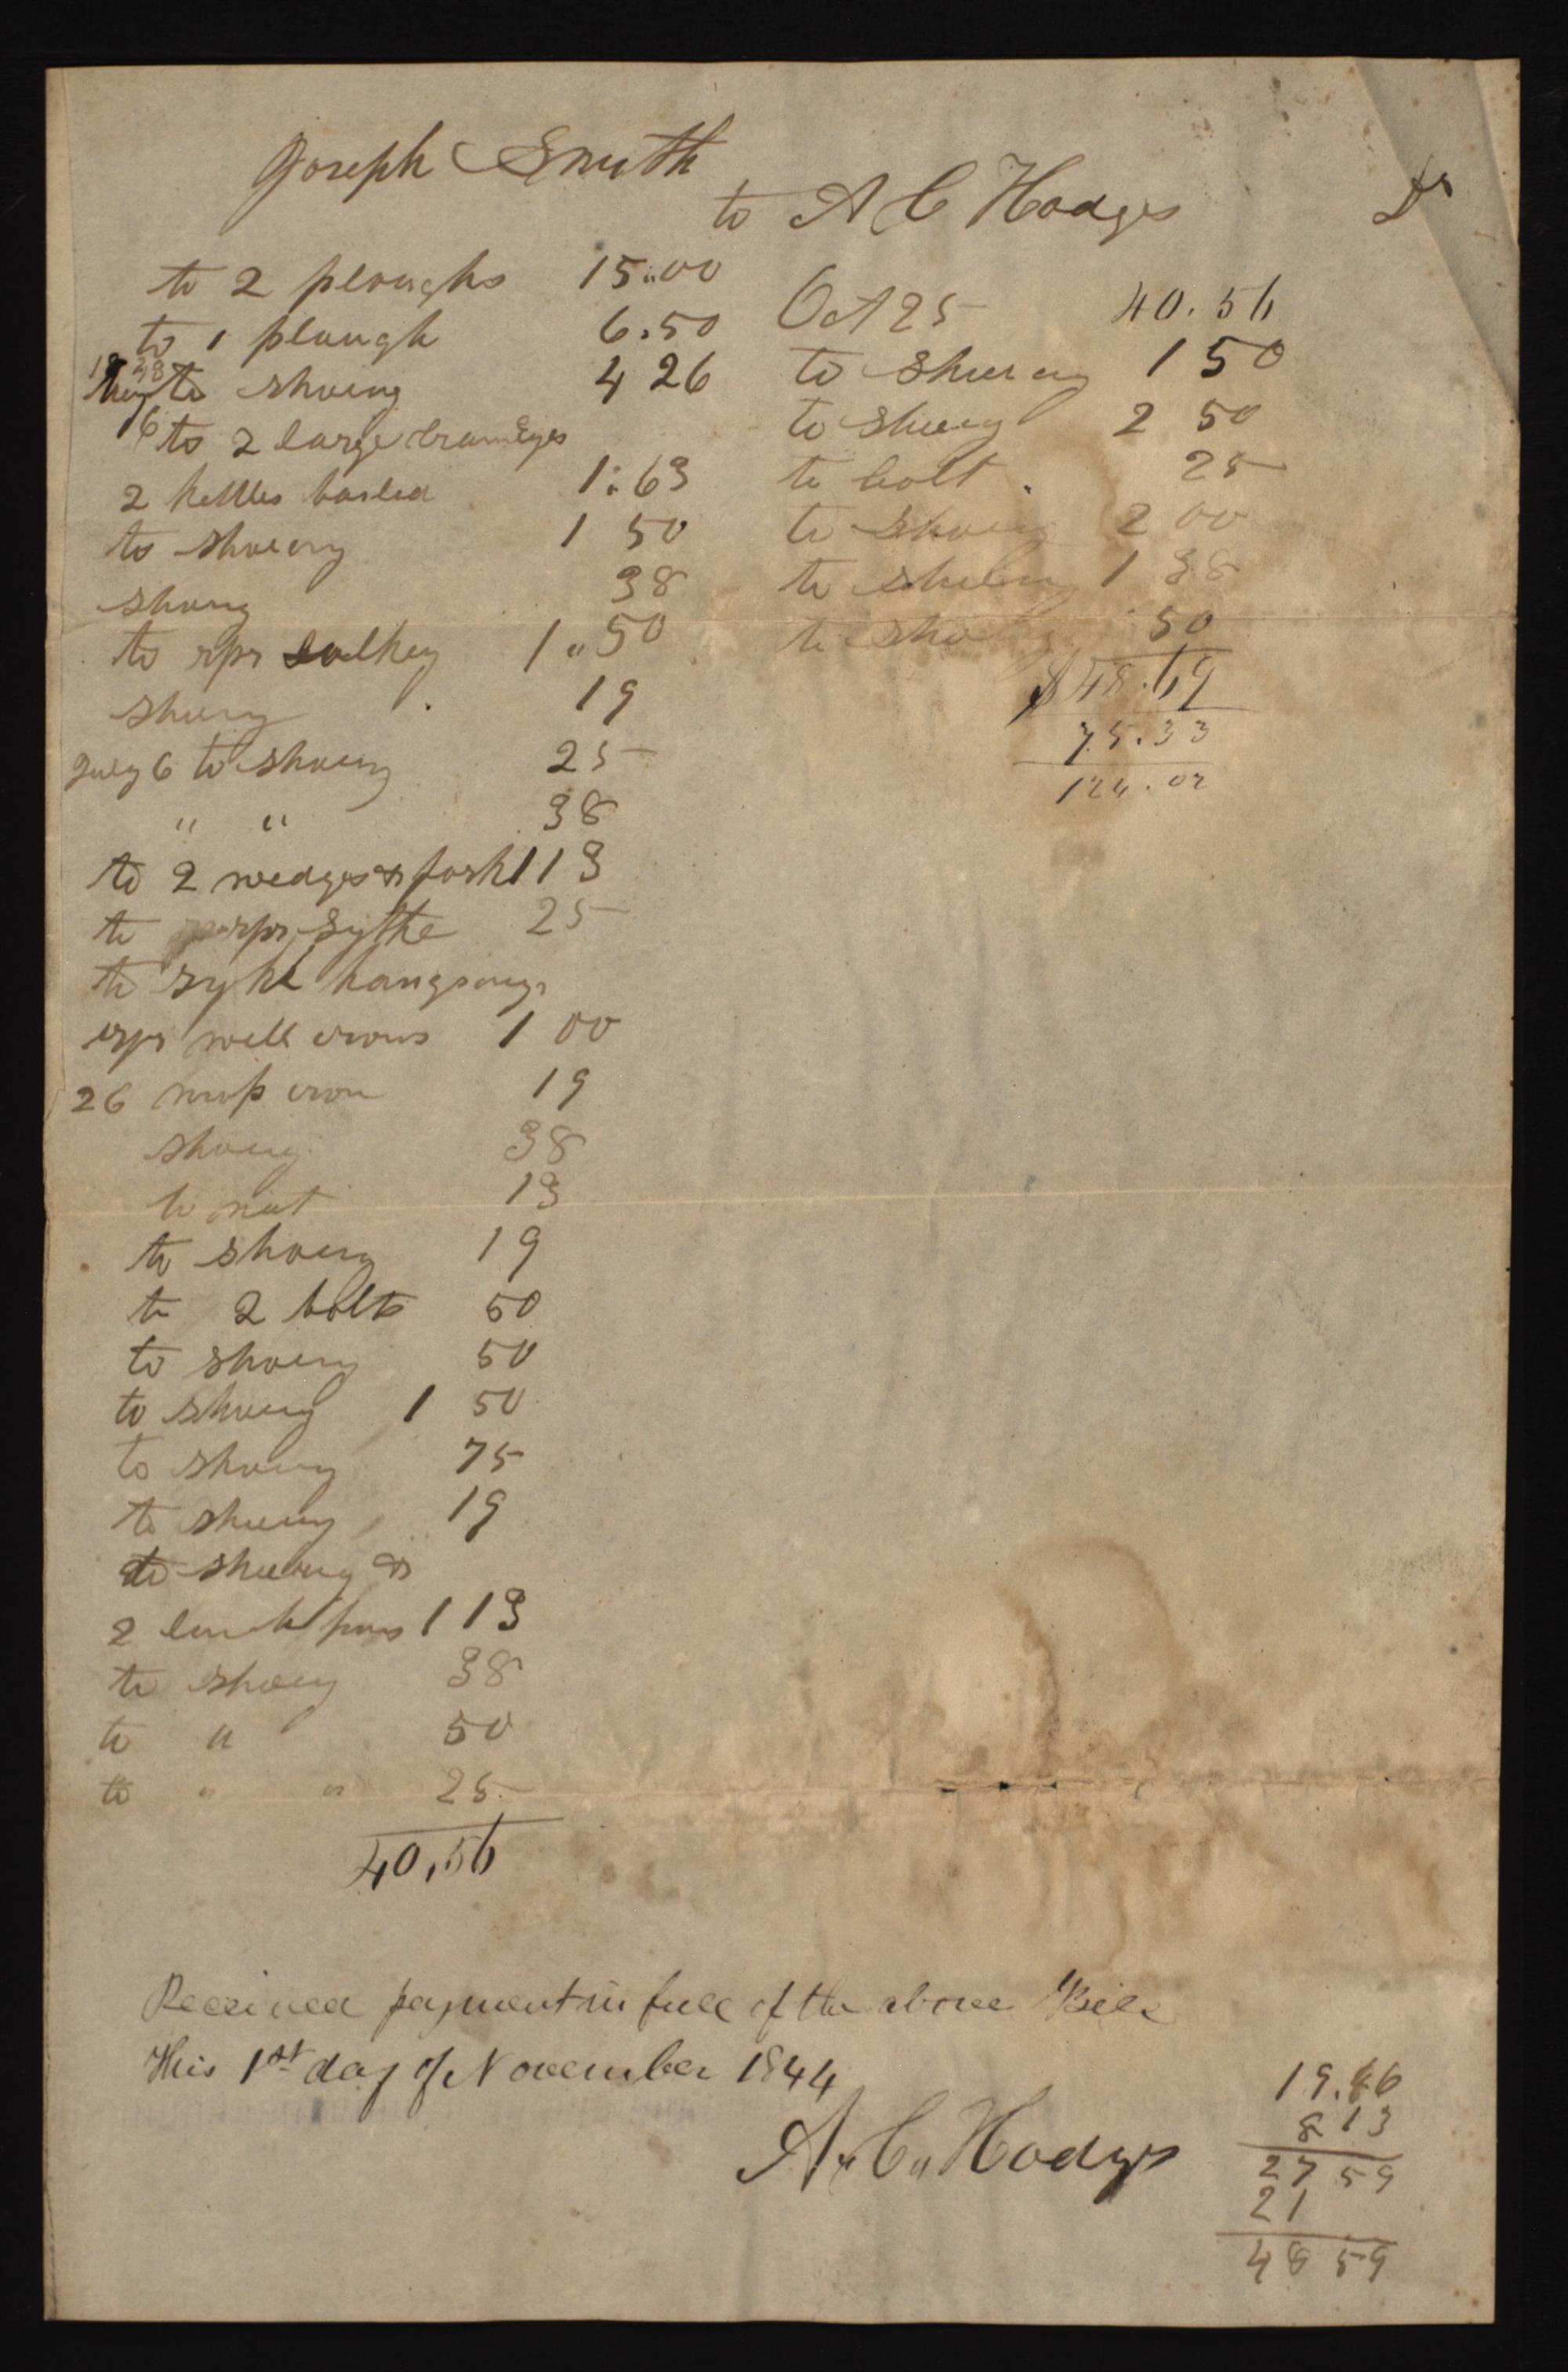 Joseph Smith
to A C Hodges Dr
to 2 ploughs 15.00
to 1 plough 6.50
1843
to shoeing 4 26
16 to 2 large
2 kettles bailed 1.63
to shoeing 1 50
shoing 38
to rpr sulkey 1..50
shoing 19
July 6 to shoeing 25
" " 38
to 2 wedges & fork 1 13
to rpr sythe 25
to sythe hangings
rpr well irons 1 00
26 mop iron 19
shoing 38
to nut 13
to shoeing 19
to 2 bolts 50
to shoeing 50
to shoeing 1 50
to shoeing 75
to shoeing 19
to shoeing &
2 pins 1 13
to shoeing 38
to " 50
to " " 25
40,56
Oct 25 40.56
to shoeing 1 50
to shoeing 2 50
to bolt 25
to shoeing 2 00
to shoeing 1 38
to shoeing 50
$48.69
75.33
124.02
Received payment in full of the above Bill
This 1st day of November 1844
A. C. Hodges
19.46
8 13
27 59
21
48 59